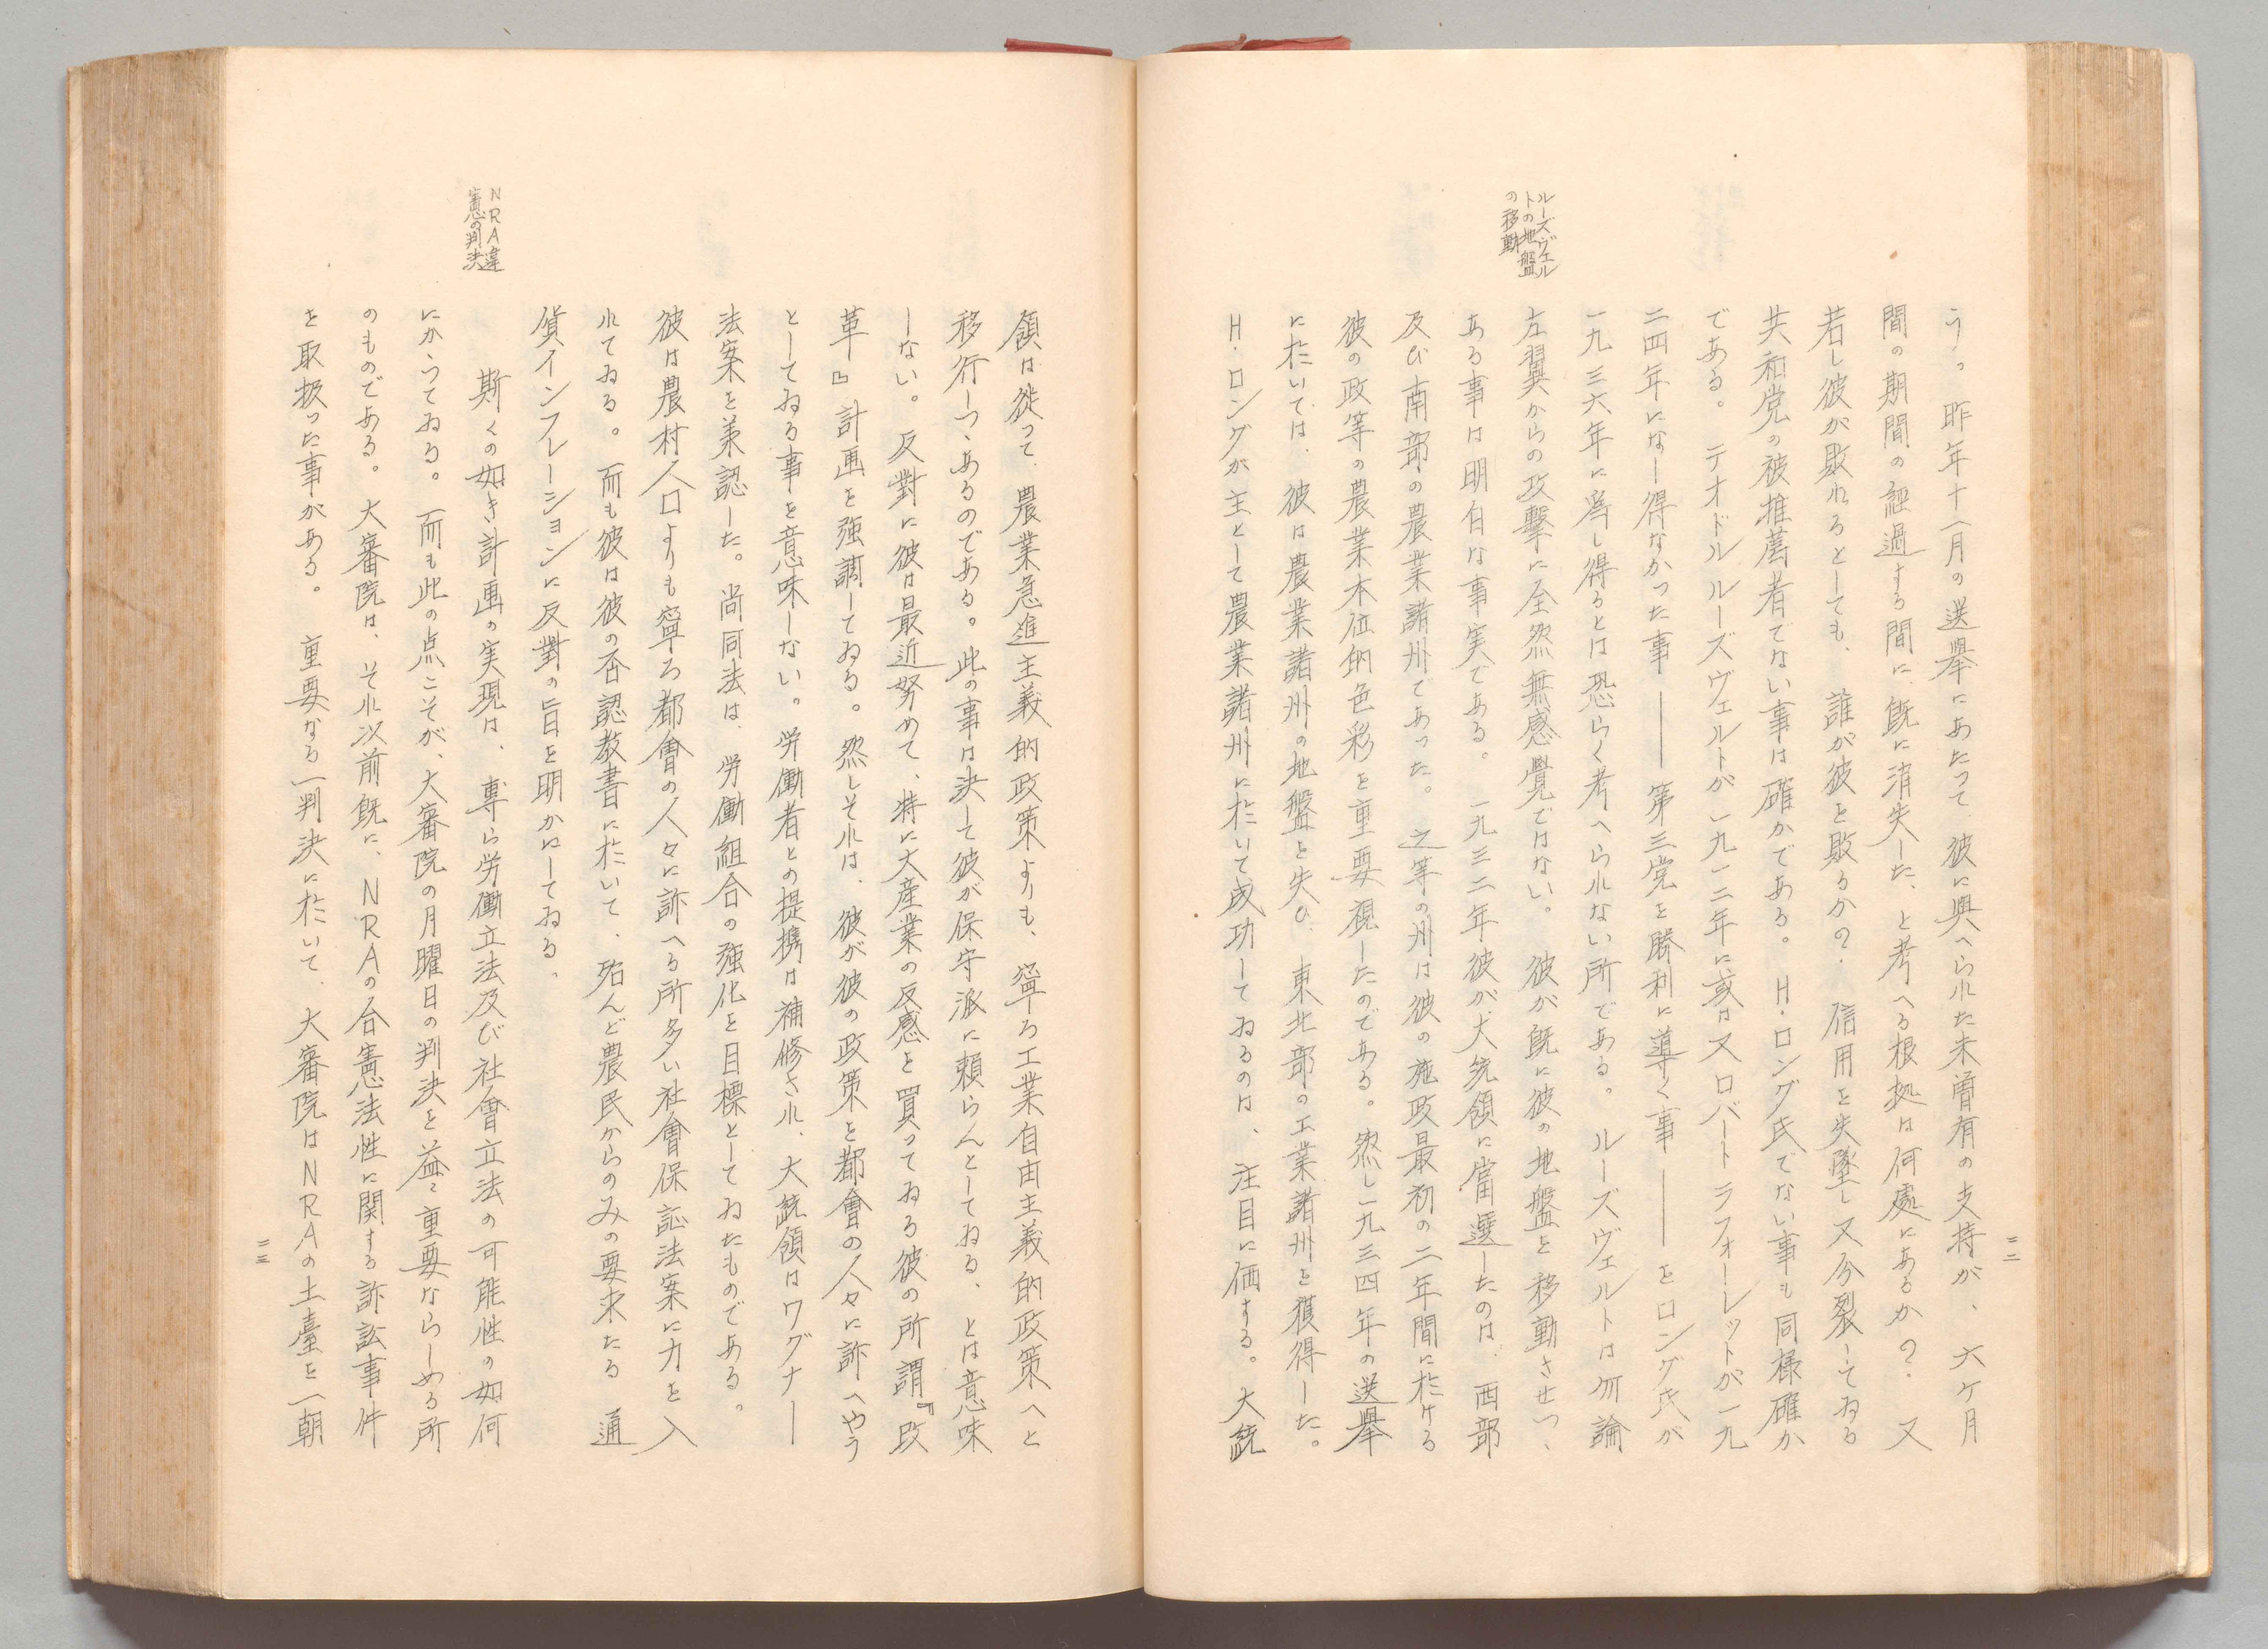 う。昨年十一月の選挙にあたって、彼に與へられた未曽有の支持が、六ケ月
間の期間の経過する間に、既に消失した、と考へる根拠は何處にあるか？又
若し彼が敗れるとしても、誰が彼を敗るか？信用を失墜し又分裂してゐる
共和党の被推薦者でない事は確かである。H・ロング氏でない事も同様確か
である。テオドルルーズヴェルトが一九一二年に或は又ロバートラフォーレットが一九
二四年になし得なかった事――第三党を勝利に導く事――をロング氏が
一九三六年に為し得るとは恐らく考へられない所である。ルーズヴェルトは勿論
ルーズヴェル
トの地盤
の移動
左翼からの攻撃に全然無感覺ではない。彼が既に彼の地盤を移動させつゝ
ある事は明白な事実である。一九三二年彼が大統領に當選したのは、西部
及び南部の農業諸州であった。之等の州は彼の施政最初の二年間に於ける
彼の政等の農業本位的色彩を重要視したのである。然し一九三四年の選挙
に於いては、彼は農業諸州の地盤を失ひ、東北部の工業諸州を獲得した。
H・ロングが主として農業諸州に於いて成功してゐるのは、注目に価する。大統
二二
領は従って、農業急進主義的政策よりも、寧ろ工業自由主義的政策へと
移行しつゝあるのである。此の事は決して彼が保守派に頼らんとしてゐる、とは意味
しない。反對に彼は最近努めて、特に大産業の反感を買ってゐる彼の所謂『改
革』計画を強調してゐる。然しそれは、彼が彼の政策を都會の人々に訴へやう
としてゐる事を意味しない。労働者との提携は補修され、大統領はワグナー
法案を承認した。尚同法は、労働組合の強化を目標としてゐたものである。
彼は農村人口よりも寧ろ都會の人々に訴へる所多い社會保証法案に力を入
れてゐる。而も彼は彼の否認教書に於いて、殆んど農民からのみの要求たる通
貨インフレーションに反對の旨を明かにしてゐる。
NRA違
憲の判決
斯くの如き計画の実現は、専ら労働立法及び社會立法の可能性の如何
にかゝってゐる。而も此の点こそが、大審院の月曜日の判決を益〻重要ならしめる所
のものである。大審院は、それ以前既に、NRAの合憲法性に関する訴訟事件
を取扱った事がある。重要なる一判決に於いて、大審院はNRAの土臺を一朝
二三